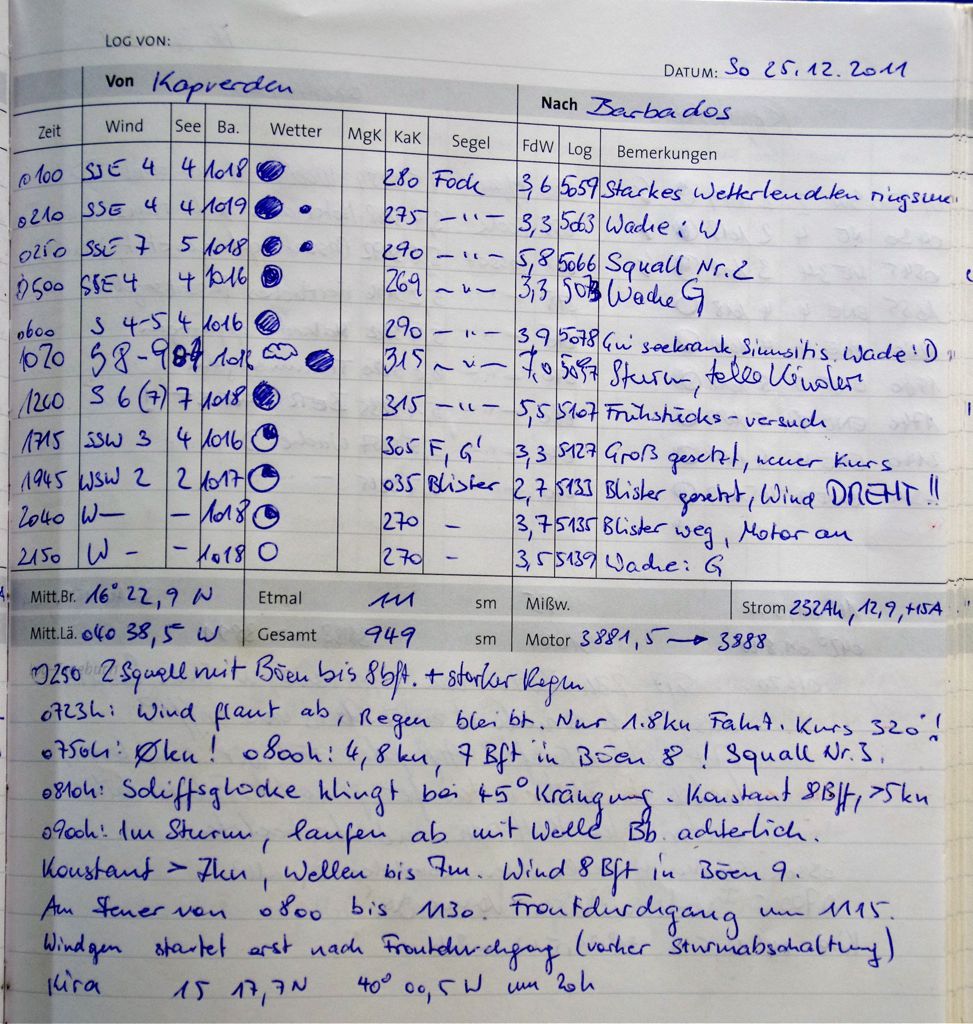 LOG VON:
DATUM: So 25.12.2011
Von Kapverden
Nach Barbados
Zeit Wind See Ba. Wetter MgK KaK Segel FdW Log Bemerkungen
0100 SSE 4 4 1018 280 Fock 3,6 5059 Starkes Wetterleuchten ringsum
0210 SSE 4 4 1019 275 -"- 3,3 5063 Wache: W
0250 SSE 7 5 1018 290 -"- 5,8 5066 Squall Nr.2
0500 SSE 4 4 1016 269 -"- 3,3 5073 Wache G
0600 S 4-5 4 1016 290 -"- 3,9 5078 Gui seekrank, Sinusitis. Wache: D
1020 S 8-9 315 -"- 7,0 Sturm, tolle Kinder
1200 S 6 (7) 7 1018 315 -"- 5,5 5107 Frühstücks-versuch
1715 SSW 3 4 1016 305 F, G' 3,3 5127 Groß gesetzt, neuer Kurs
1945 WSW 2 2 1017 035 Blister 2,7 5133 Blister gesetzt, Wind DREHT!!
2040 W- - 1018 270 - 3,7 5135 Blister weg, Motor an
2150 W - - 1018 270 - 3,5 5139 Wache: G
Mitt.Br. 16° 22,9 N Etmal 111 sm Mißw. Strom 232Ah, 12,9, +15A
Mitt.Lä. 040 38,5 W Gesamt 949 sm Motor 3881,5 → 3888
0250 2 Squall mit Böen bis 8bft. + starker Regen
0723h: Wind flaut ab, Regen bleibt. Nur 1.8kn Fahrt. Kurs 320°!
0750h: Økn! 0800h: 4,8kn, 7 Bft in Böen 8! Squall Nr.3.
0810h: Schiffsglocke klingt bei 45° Krängung. Konstant 8Bft, >5kn
0900h: Im Sturm, laufen ab mit Welle Bb. achterlich.
Konstant > 7kn, Wellen bis 7m. Wind 8 Bft in Böen 9.
Am Steuer von 0800 bis 1130. Frontdurchgang um 1115.
Windgen startet erst nach Frontdurchgang (vorher Sturmabschaltung)
Kira 15 17,7N 40° 00,5 W um 20h